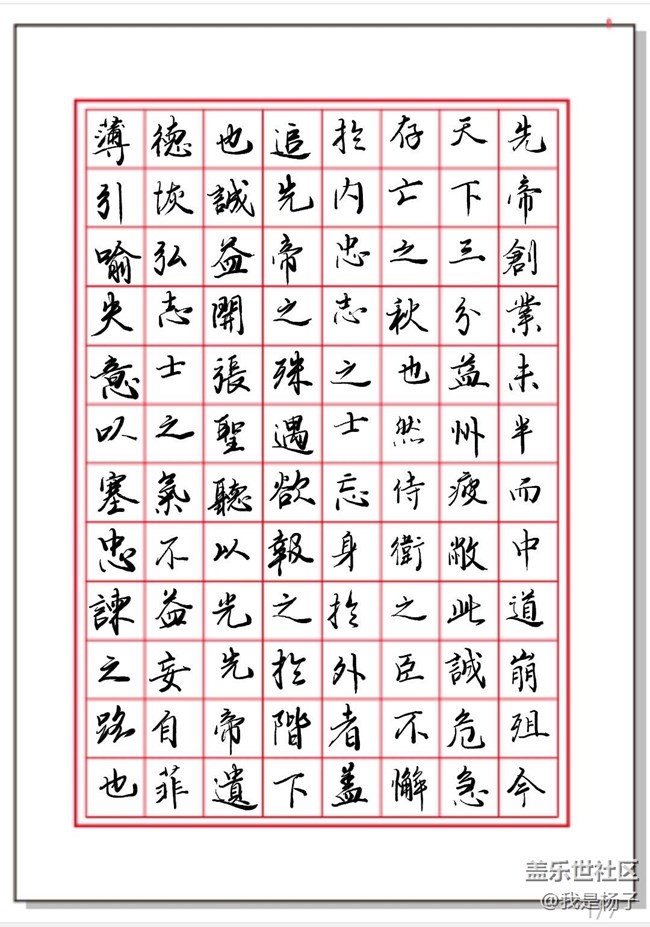 先帝創業未半而中道崩殂今
天下三分益州疲敝此誠危急
存亡之秋也然侍衛之臣不懈
於内忠志之士忘身於外者盖
追先帝之殊遇欲報之於階下
也誠益開張聖聽以光先帝遺
德恢弘志士之氣不益妄自菲
薄引喻失意以塞忠諫之路也
盖乐世社区
@我是杨子